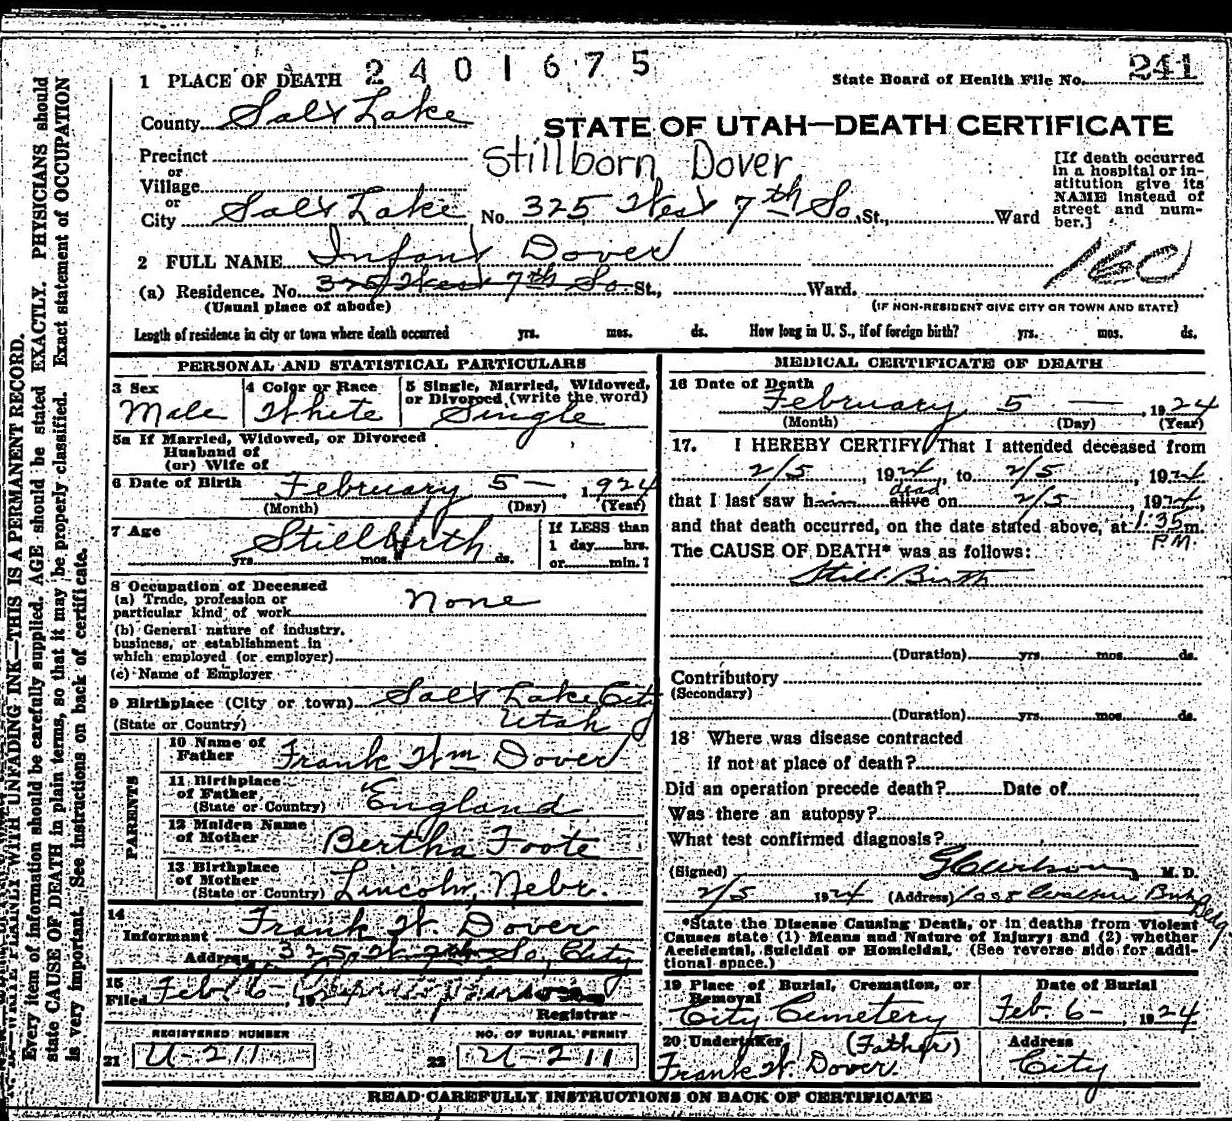 2401675
State Board of Health File No. 241
1 PLACE OF DEATH
County Salt Lake
STATE OF UTAH—DEATH CERTIFICATE
Precinct
or
Village
Stillborn Dover
[If death occurred in a hospital or in-
stitution give its
NAME instead of
street and num-
ber.]
or
City Salt Lake No. 325 West 7th So. St., Ward
2 FULL NAME Infant Dover
160
(a) Residence. No. 325 West 7th So. St., Ward.
(Usual place of abode) (IF NON-RESIDENT GIVE CITY OR TOWN AND STATE)
Length of residence in city or town where death occurred yrs. mos. ds. How long in U. S., if of foreign birth? yrs. mos. ds.
PERSONAL AND STATISTICAL PARTICULARS
3 Sex
Male
4 Color or Race
White
5 Single, Married, Widowed,
or Divorced (write the word)
Single
5a If Married, Widowed, or Divorced
Husband of
(or) Wife of
6 Date of Birth February 5 — , 1924
(Month) (Day) (Year)
7 Age
Stillbirth
yrs. mos. ds.
If LESS than
1 day hrs.
or min.?
8 Occupation of Deceased
(a) Trade, profession or
particular kind of work None
(b) General nature of industry,
business, or establishment in
which employed (or employer)
(c) Name of Employer
9 Birthplace (City or town) Salt Lake City
(State or Country) Utah
PARENTS
10 Name of
Father Frank Wm Dover
11 Birthplace
of Father
(State or Country) England
12 Maiden Name
of Mother Bertha Foote
13 Birthplace
of Mother
(State or Country) Lincoln, Nebr.
14
Informant Frank W. Dover
Address 325 W. 7th So, City
15
Filed Feb. 6-, 19
Registrar
REGISTERED NUMBER
21 U-211
NO. OF BURIAL PERMIT
22 U-211
MEDICAL CERTIFICATE OF DEATH
16 Date of Death
February 5 — , 1924
(Month) (Day) (Year)
17. I HEREBY CERTIFY That I attended deceased from
2/5, 1924, to 2/5, 1924
dead
that I last saw him alive on 2/5, 1924,
and that death occurred, on the date stated above, at 1:35 m.
P.M.
The CAUSE OF DEATH* was as follows:
Still Birth
(Duration) yrs. mos. ds.
Contributory
(Secondary)
(Duration) yrs. mos. ds.
18 Where was disease contracted
if not at place of death?
Did an operation precede death? Date of
Was there an autopsy?
What test confirmed diagnosis?
(Signed) M. D.
2/5 1924 (Address) 1008
*State the Disease Causing Death, or in deaths from Violent
Causes state (1) Means and Nature of Injury; and (2) whether
Accidental, Suicidal or Homicidal. (See reverse side for addi-
tional space.)
19 Place of Burial, Cremation, or
Removal
City Cemetery
Date of Burial
Feb. 6-, 1924
20 Undertaker (Father)
Frank W. Dover.
Address
City
READ CAREFULLY INSTRUCTIONS ON BACK OF CERTIFICATE
WRITE PLAINLY WITH UNFADING INK—THIS IS A PERMANENT RECORD.
Every item of information should be carefully supplied. AGE should be stated EXACTLY. PHYSICIANS should
state CAUSE OF DEATH in plain terms, so that it may be properly classified. Exact statement of OCCUPATION
is very important. See instructions on back of certificate.